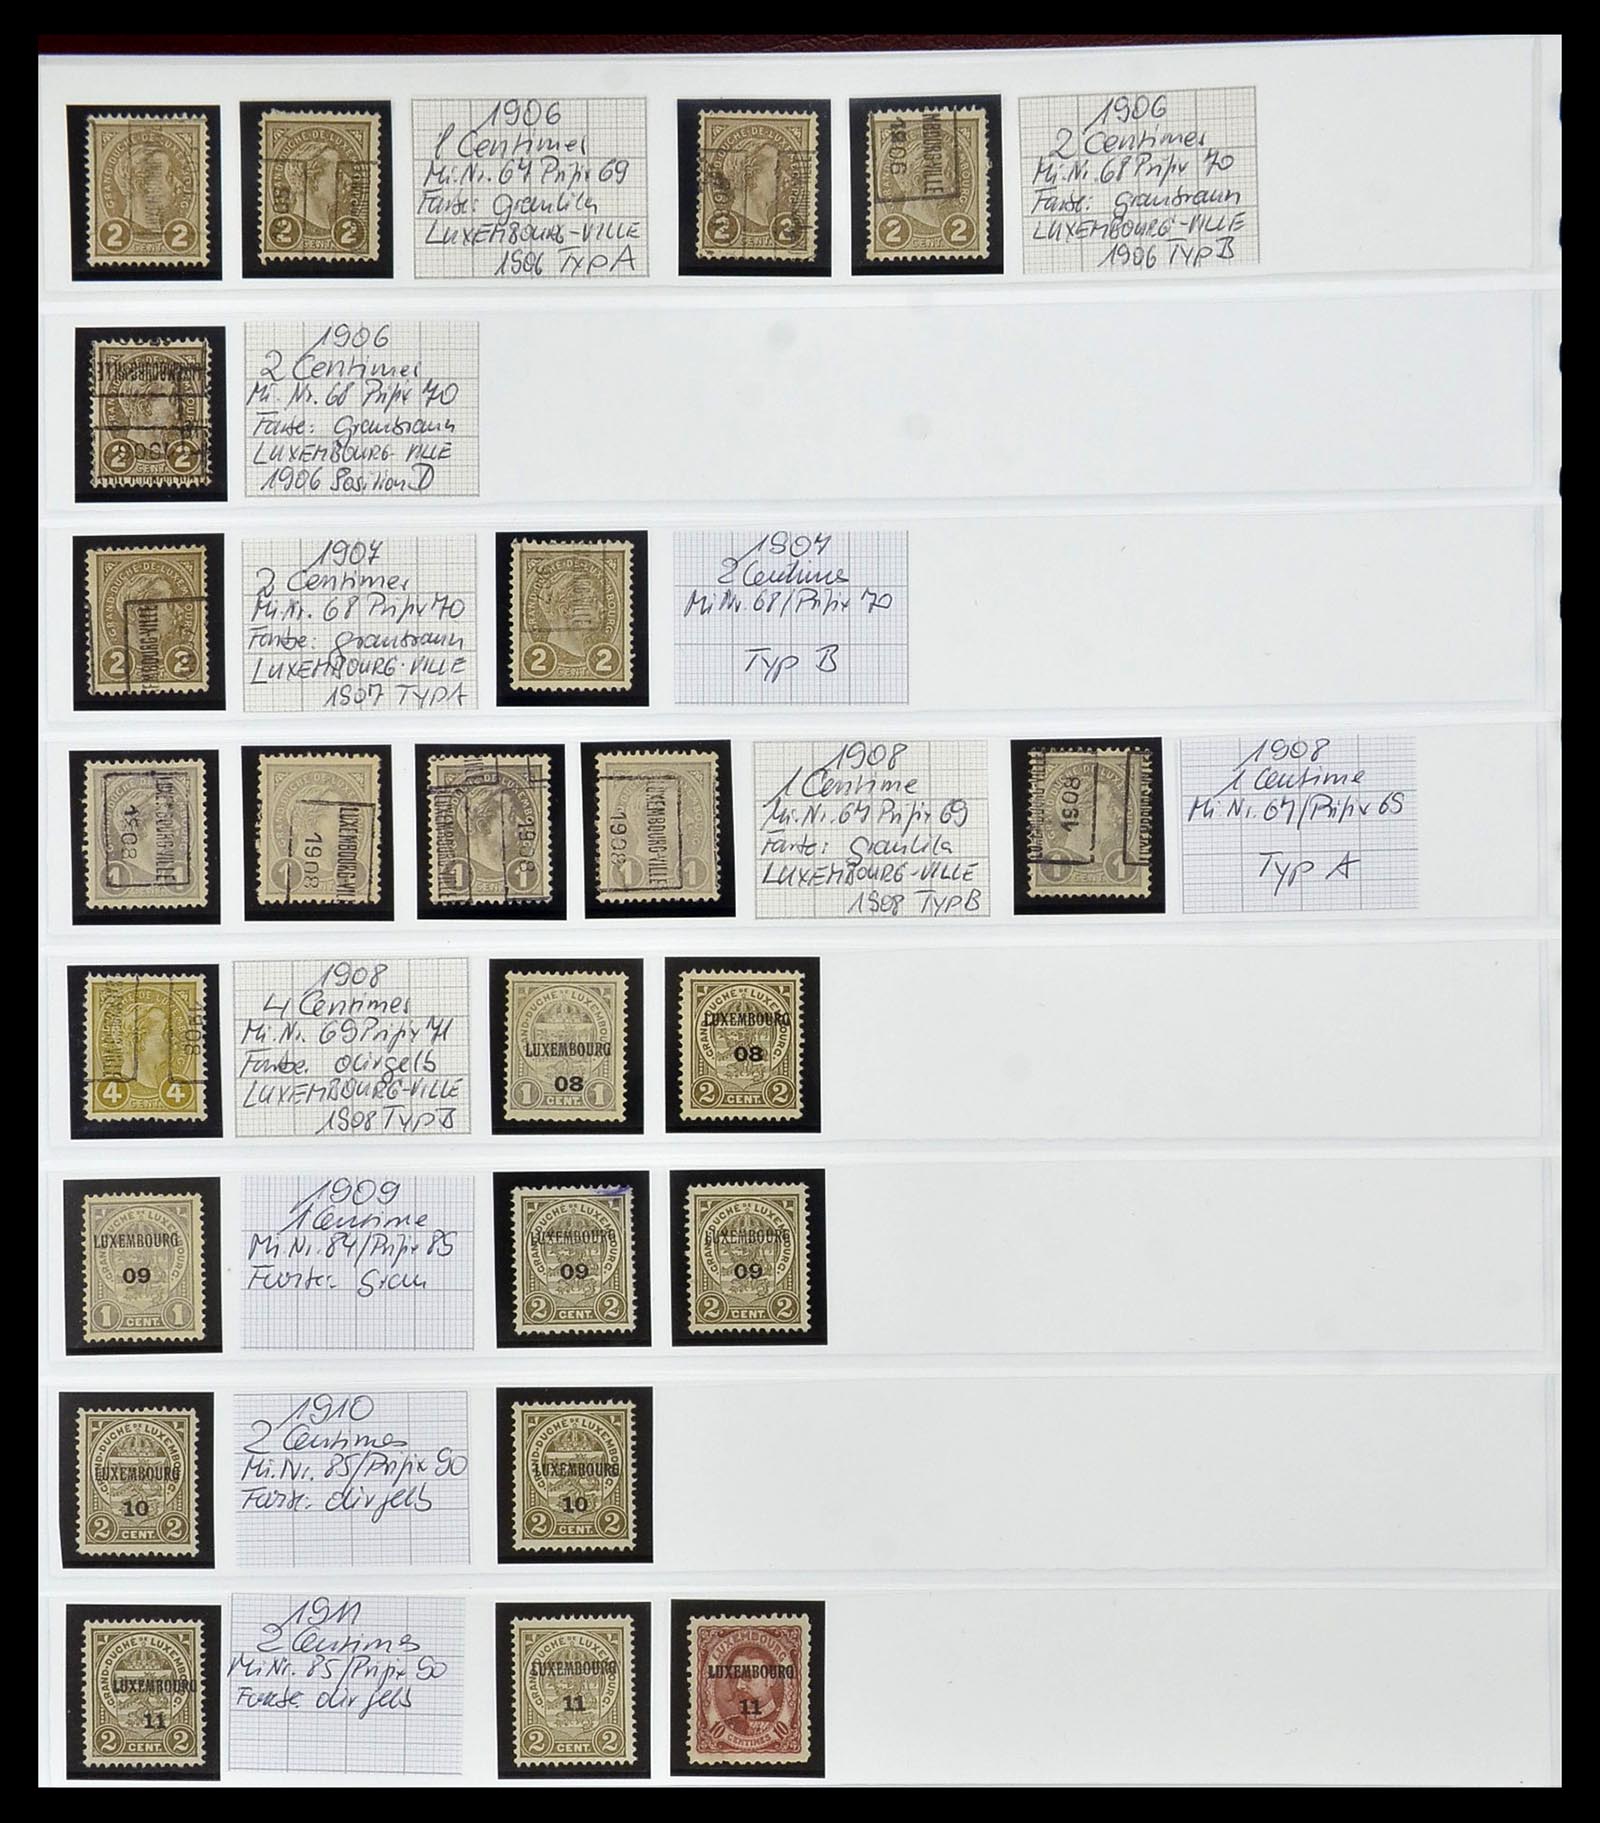 1906
1 Centimes
Mi.Nr. 67 Prifix 69
Farbe: graulila
LUXEMBOURG-VILLE
1906 Typ A
1906
2 Centimes
Mi.Nr. 68 Prifix 70
Farbe: graubraun
LUXEMBOURG-VILLE
1906 Typ B
1906
2 Centimes
Mi. Nr. 68 Prifix 70
Farbe: graubraun
LUXEMBOURG-VILLE
1906 Position D
1907
2 Centimes
Mi.Nr. 68 Prifix 70
Farbe: graubraun
LUXEMBOURG-VILLE
1907 Typ A
1907
2 Centimes
Mi Nr. 68/Prifix 70
Typ B
1908
1 Centime
Mi.Nr. 67 Prifix 69
Farbe: graulila
LUXEMBOURG-VILLE
1908 Typ B
1908
1 Centime
Mi.Nr. 67/Prifix 69
Typ A
1908
4 Centimes
Mi.Nr. 69 Prifix 71
Farbe: olivgelb
LUXEMBOURG-VILLE
1908 Typ B
GRAND-DUCHÉ DE LUXEMBOURG
LUXEMBOURG
08
1 CENT. 1
GRAND-DUCHÉ DE LUXEMBOURG
LUXEMBOURG
08
2 CENT. 2
LUXEMBOURG
09
1 CENT. 1
1909
1 Centime
Mi.Nr. 84/Prifix 85
Farbe: grau
LUXEMBOURG
09
2 CENT. 2
LUXEMBOURG
09
2 CENT. 2
LUXEMBOURG
10
2 CENT. 2
1910
2 Centimes
Mi.Nr. 85/Prifix 90
Farbe: olivgelb
LUXEMBOURG
10
2 CENT. 2
LUXEMBOURG
11
2 CENT. 2
1911
2 Centimes
Mi Nr. 85/Prifix 90
Farbe olivgelb
LUXEMBOURG
11
2 CENT. 2
LUXEMBOURG
LUXEMBOURG
11
10 CENTIMES 10